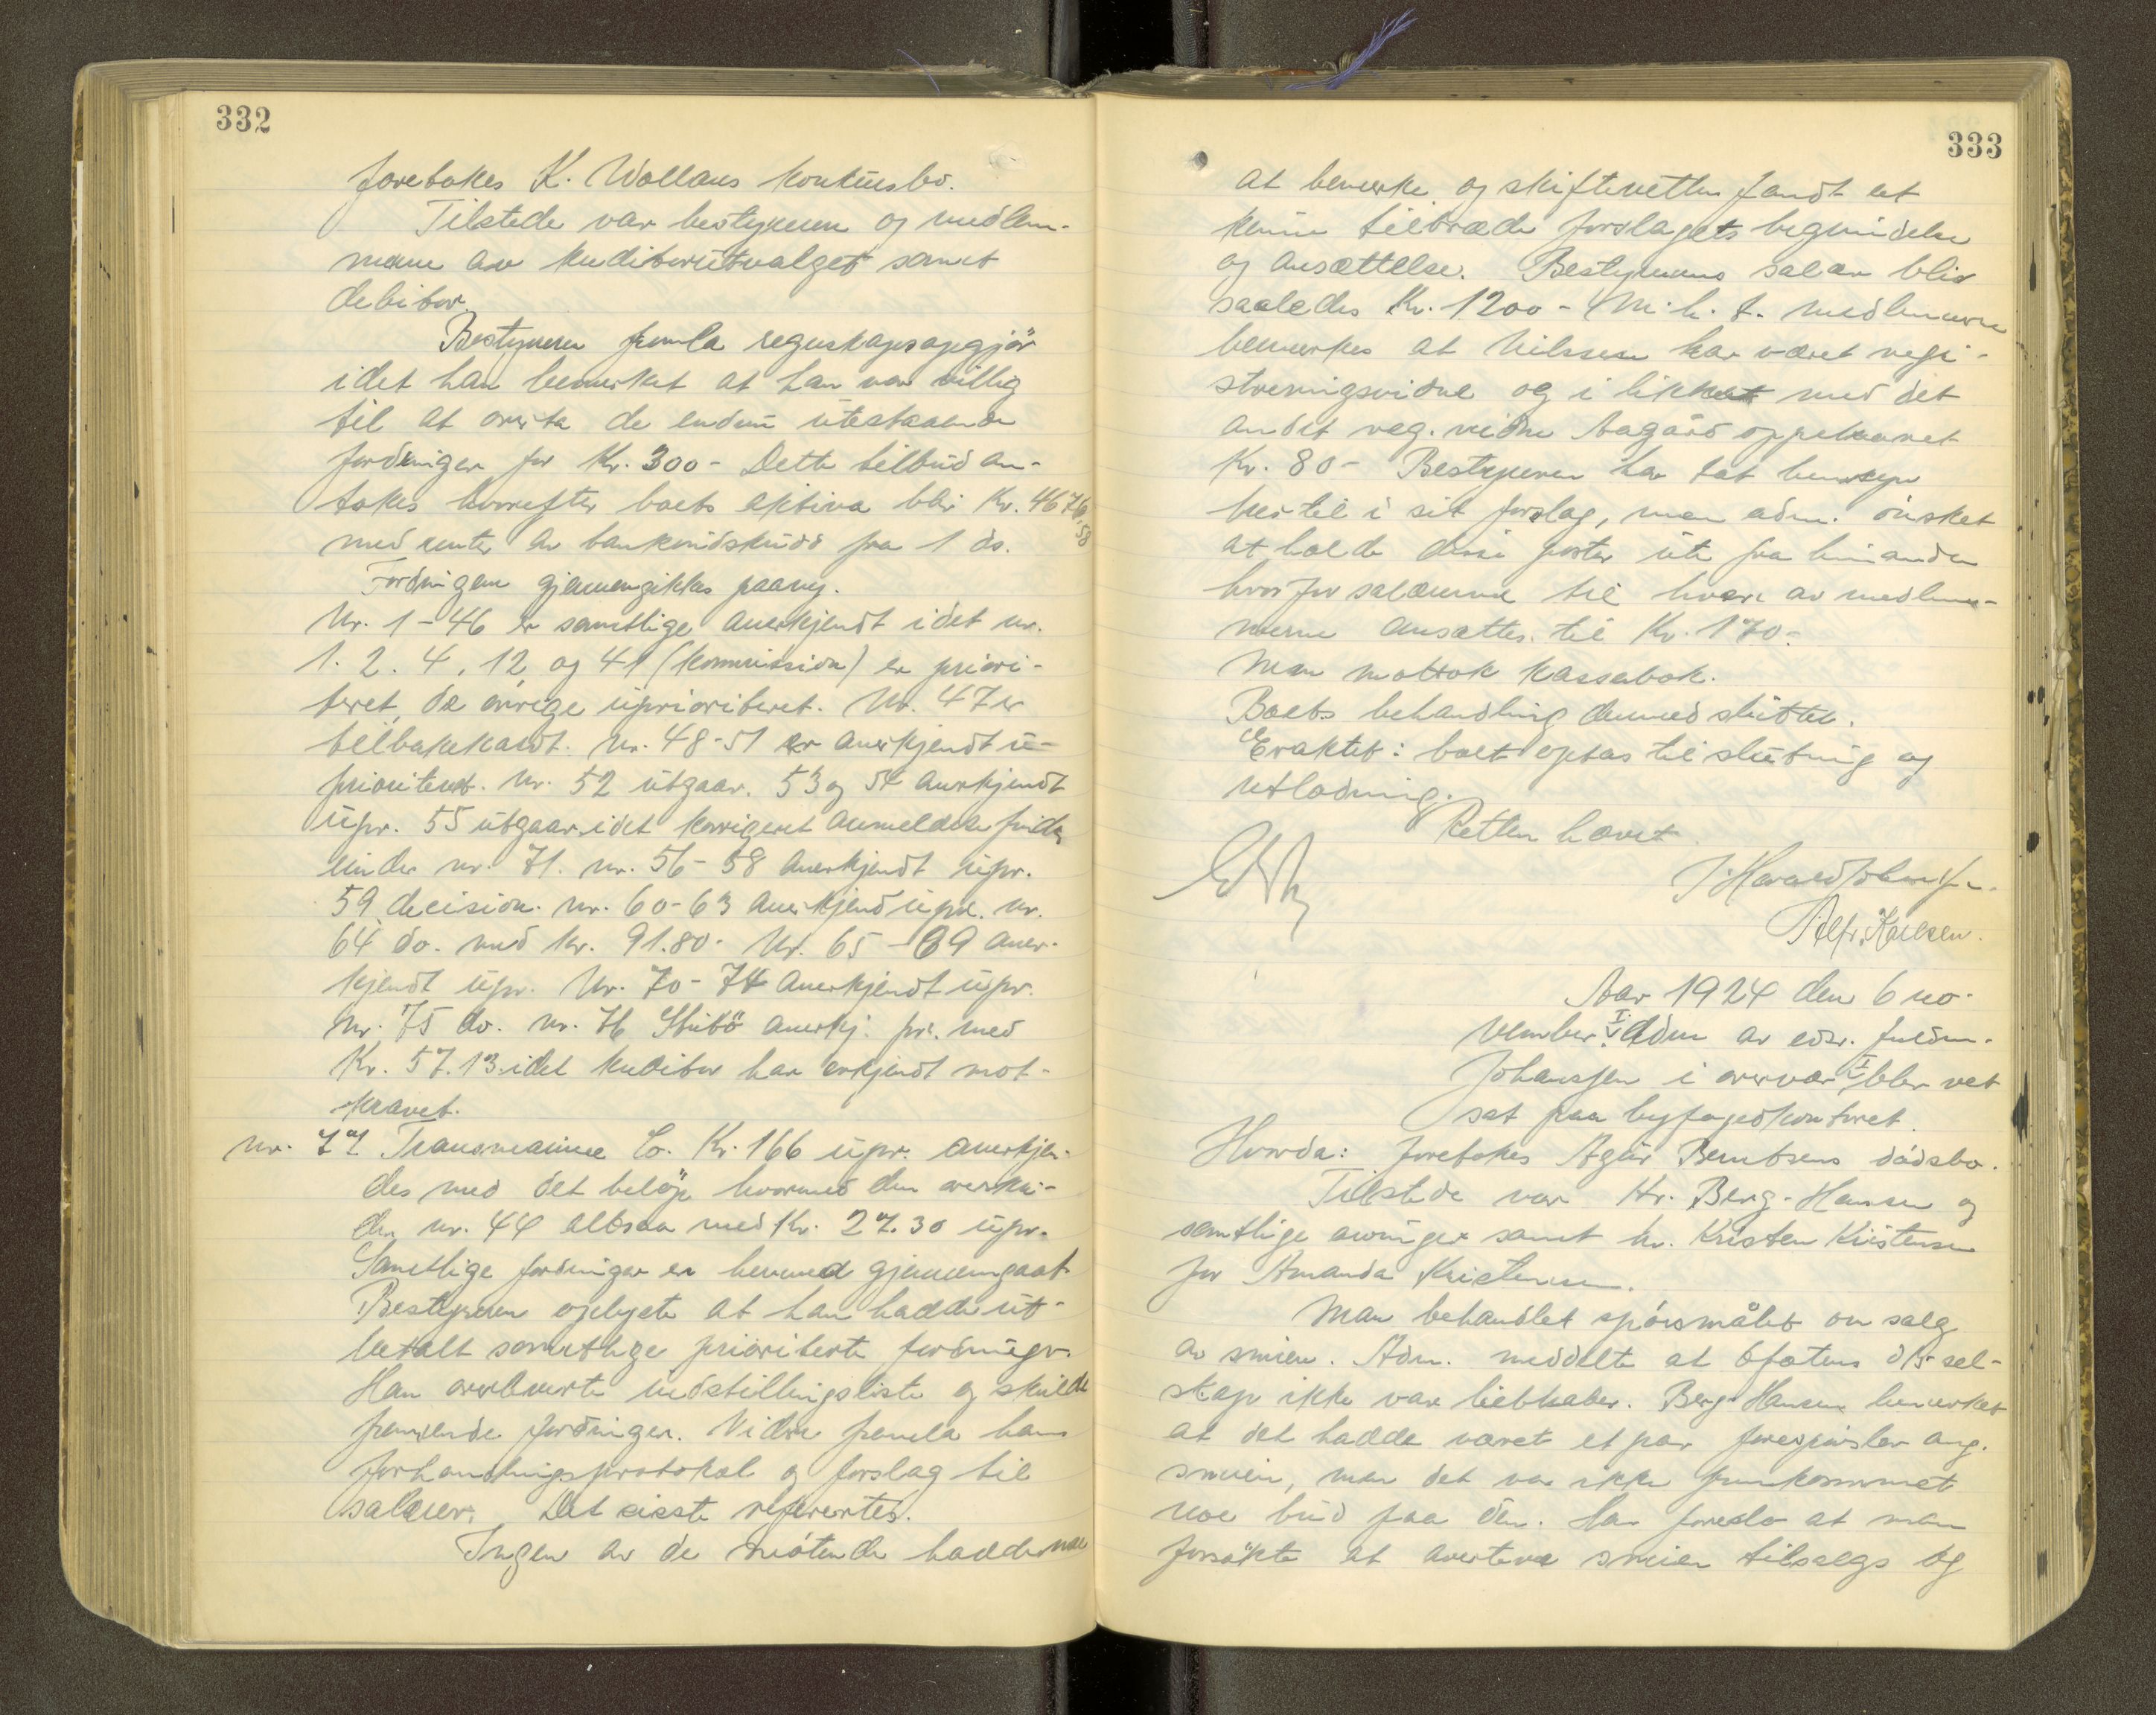 332
foretokes K. Wollans konkursbo.
Tilstede var bestyreren og medlem-
merne av kreditorutvalget samt
debitor.
Bestyreren fremla regnskapsopgjör
idet han bemerket at han var villig
til at overta de endnu utestaaende
fordringer for Kr. 300- Dette tilbud an-
tokes hvorefter boets aktiva blir Kr. 4676
58
med renter av bankindskudd fra 1 ds.
Fordringene gjennemgikkes paany.
Nr. 1-46 er samtlige anerkjendt idet nr.
1. 2. 4, 12 og 41 (kommission) er priori-
teret, de övrige uprioriteret. Nr. 47 er
tilbakekaldt. Nr. 48-51 er anerkjendt u-
prioritert. Nr. 52 utgaar. 53 og 54 anerkjendt
upr. 55 utgaar idet korrigeret anmeldelse findes
under nr. 71. nr. 56-58 anerkjendt upr.
59 decision. Nr. 60-63 anerkjend upr. nr.
64 do. med kr. 91.80. Nr. 65-69 aner-
kjendt upr. Nr. 70-74 anerkjendt upr.
Nr. 75 do. nr. 76 Stibö anerkj. pr. med
Kr. 57.13 idet kreditor har erkjendt mot-
kravet.
Nr. 77 Co. Kr. 166 upr. anerkjen-
des med det belöp hvormed den overski-
der nr. 44 altsaa med Kr. 27.30 upr.
Samtlige fordringer er hermed gjennemgaat
Bestyreren oplyste at han hadde ut-
betalt samtlige prioriterte fordringer.
Han overleverte indstillingsliste og skilte
fordringer. Videre fremla han
forhandlingsprotokol og forslag til
salærer. Det sisste refereertes.
Ingen av de mötende hadde noe
333
at bemerke og skifteretten fandt at
kunne tiltræde forslagets begrundelse
og ansættelse. Bestyrerens salær blir
saaledes Kr. 1200- M. h. t. medlemmerne
bemerkes at Nilssen har været regi-
streringsvidne og i likhet med det
andet reg. vidne Aagård oppebaaret
Kr. 80- Bestyreren har tat hensyn
hertil i sit forslag, men adm. önsket
at holde disse poster ute fra hinanden
hvorfor salærerne til hver av medlem-
merne ansættes til Kr. 170.-
Man mottok kassabok.
Boets behandling dermed sluttet.
Eraktet: boet optas til slutning og
utlodning.
Retten hævet
J. Harald Johansen.
Alfr. Karlsen.
Aar 1924 den 6 no-
vember. adm av edsv. fuldm.
Johanssen i overvær blev ret
sat paa byfogedkontoret.
Hvorda: foretokes Agur Berntsens dödsbo.
Tilstede var Hr. Berg-Hansen og
samtlige arvinger samt hr. Kristen Kristensen
for Amanda Kristensen.
Man behandlet spörsmålet om salg
av smien. Adm. meddelte at Ofotens D/S sel-
skap ikke var liebhaber. Berg-Hansen bemerket
at det hadde været et par forespörsler ang.
smien, men det var ikke fremkommet
noe bud paa den. Han foreslo at man
forsökte at avertere smien tilsalgs og